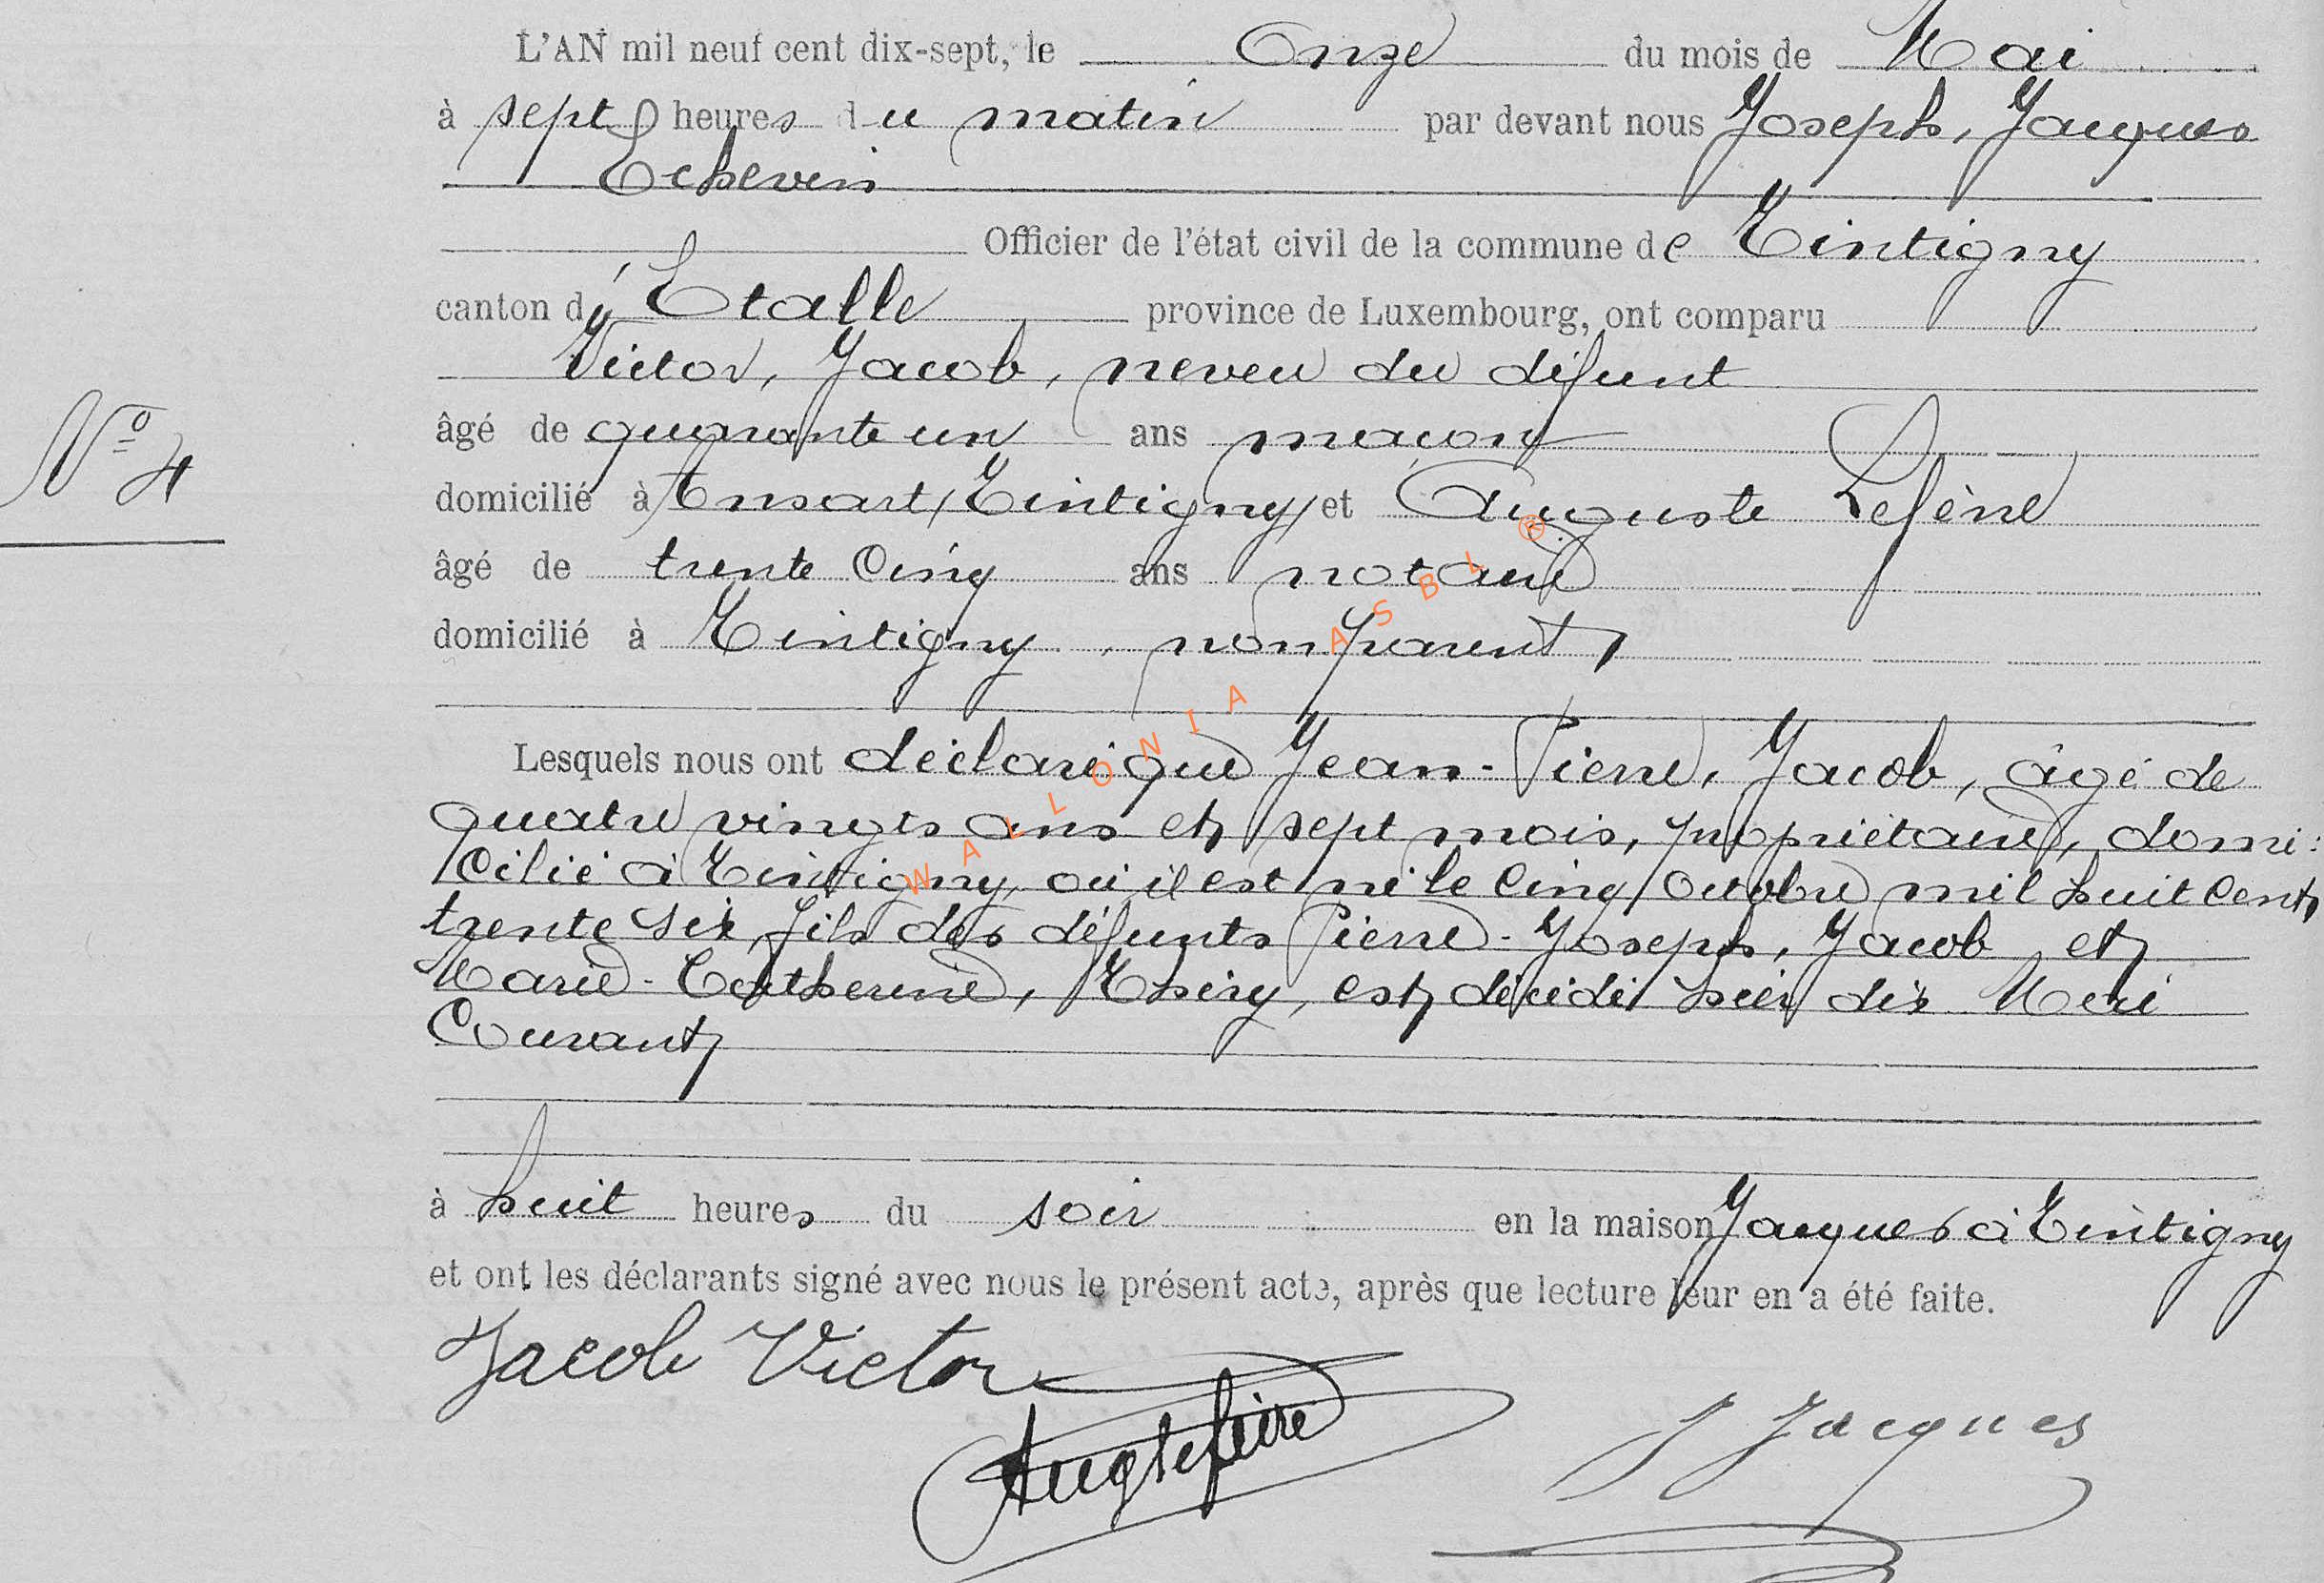 L'AN mil neuf cent dix-sept, le Onze du mois de Mai
à sept heures du matin par devant nous Joseph, Jacques
Echevin
Officier de l'état civil de la commune de Tintigny
canton d'Etalle province de Luxembourg, ont comparu
Victor, Jacob, neveu du défunt
Nº 4
âgé de quarante un ans maçon
domicilié à Ansart, Tintigny, et Auguste Lefèvre
âgé de trente cinq ans notaire
domicilié à Tintigny, non parent,
Lesquels nous ont déclaré que Jean-Pierre, Jacob, âgé de
quatre vingts ans et sept mois, propriétaire, domi:
cilié à Tintigny, où il est né le cinq octobre mil huit cent
trente six, fils des défunts Pierre-Joseph, Jacob et
Marie-Catherine, Thiry, est décédé hier dix Mai
Courant
à huit heures du soir en la maison Jacques à Tintigny
et ont les déclarants signé avec nous le présent acte, après que lecture leur en a été faite.
Jacob Victor
J Jacques
WALLONIA ASBL ®